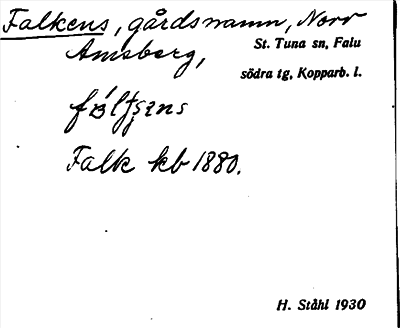 Falkens, gårdsnamn, Norr
Amsberg,
St. Tuna sn, Falu
södra tg, Kopparb. l.
Falk kb 1880.
H. Ståhl 1930